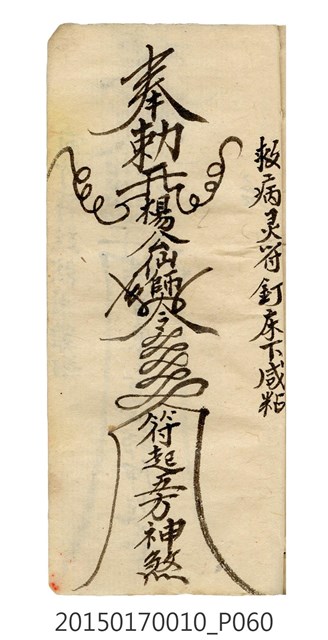 救病灵符釘床下或粘
奉勅
楊公仙師令
符起五方神煞
20150170010_P060